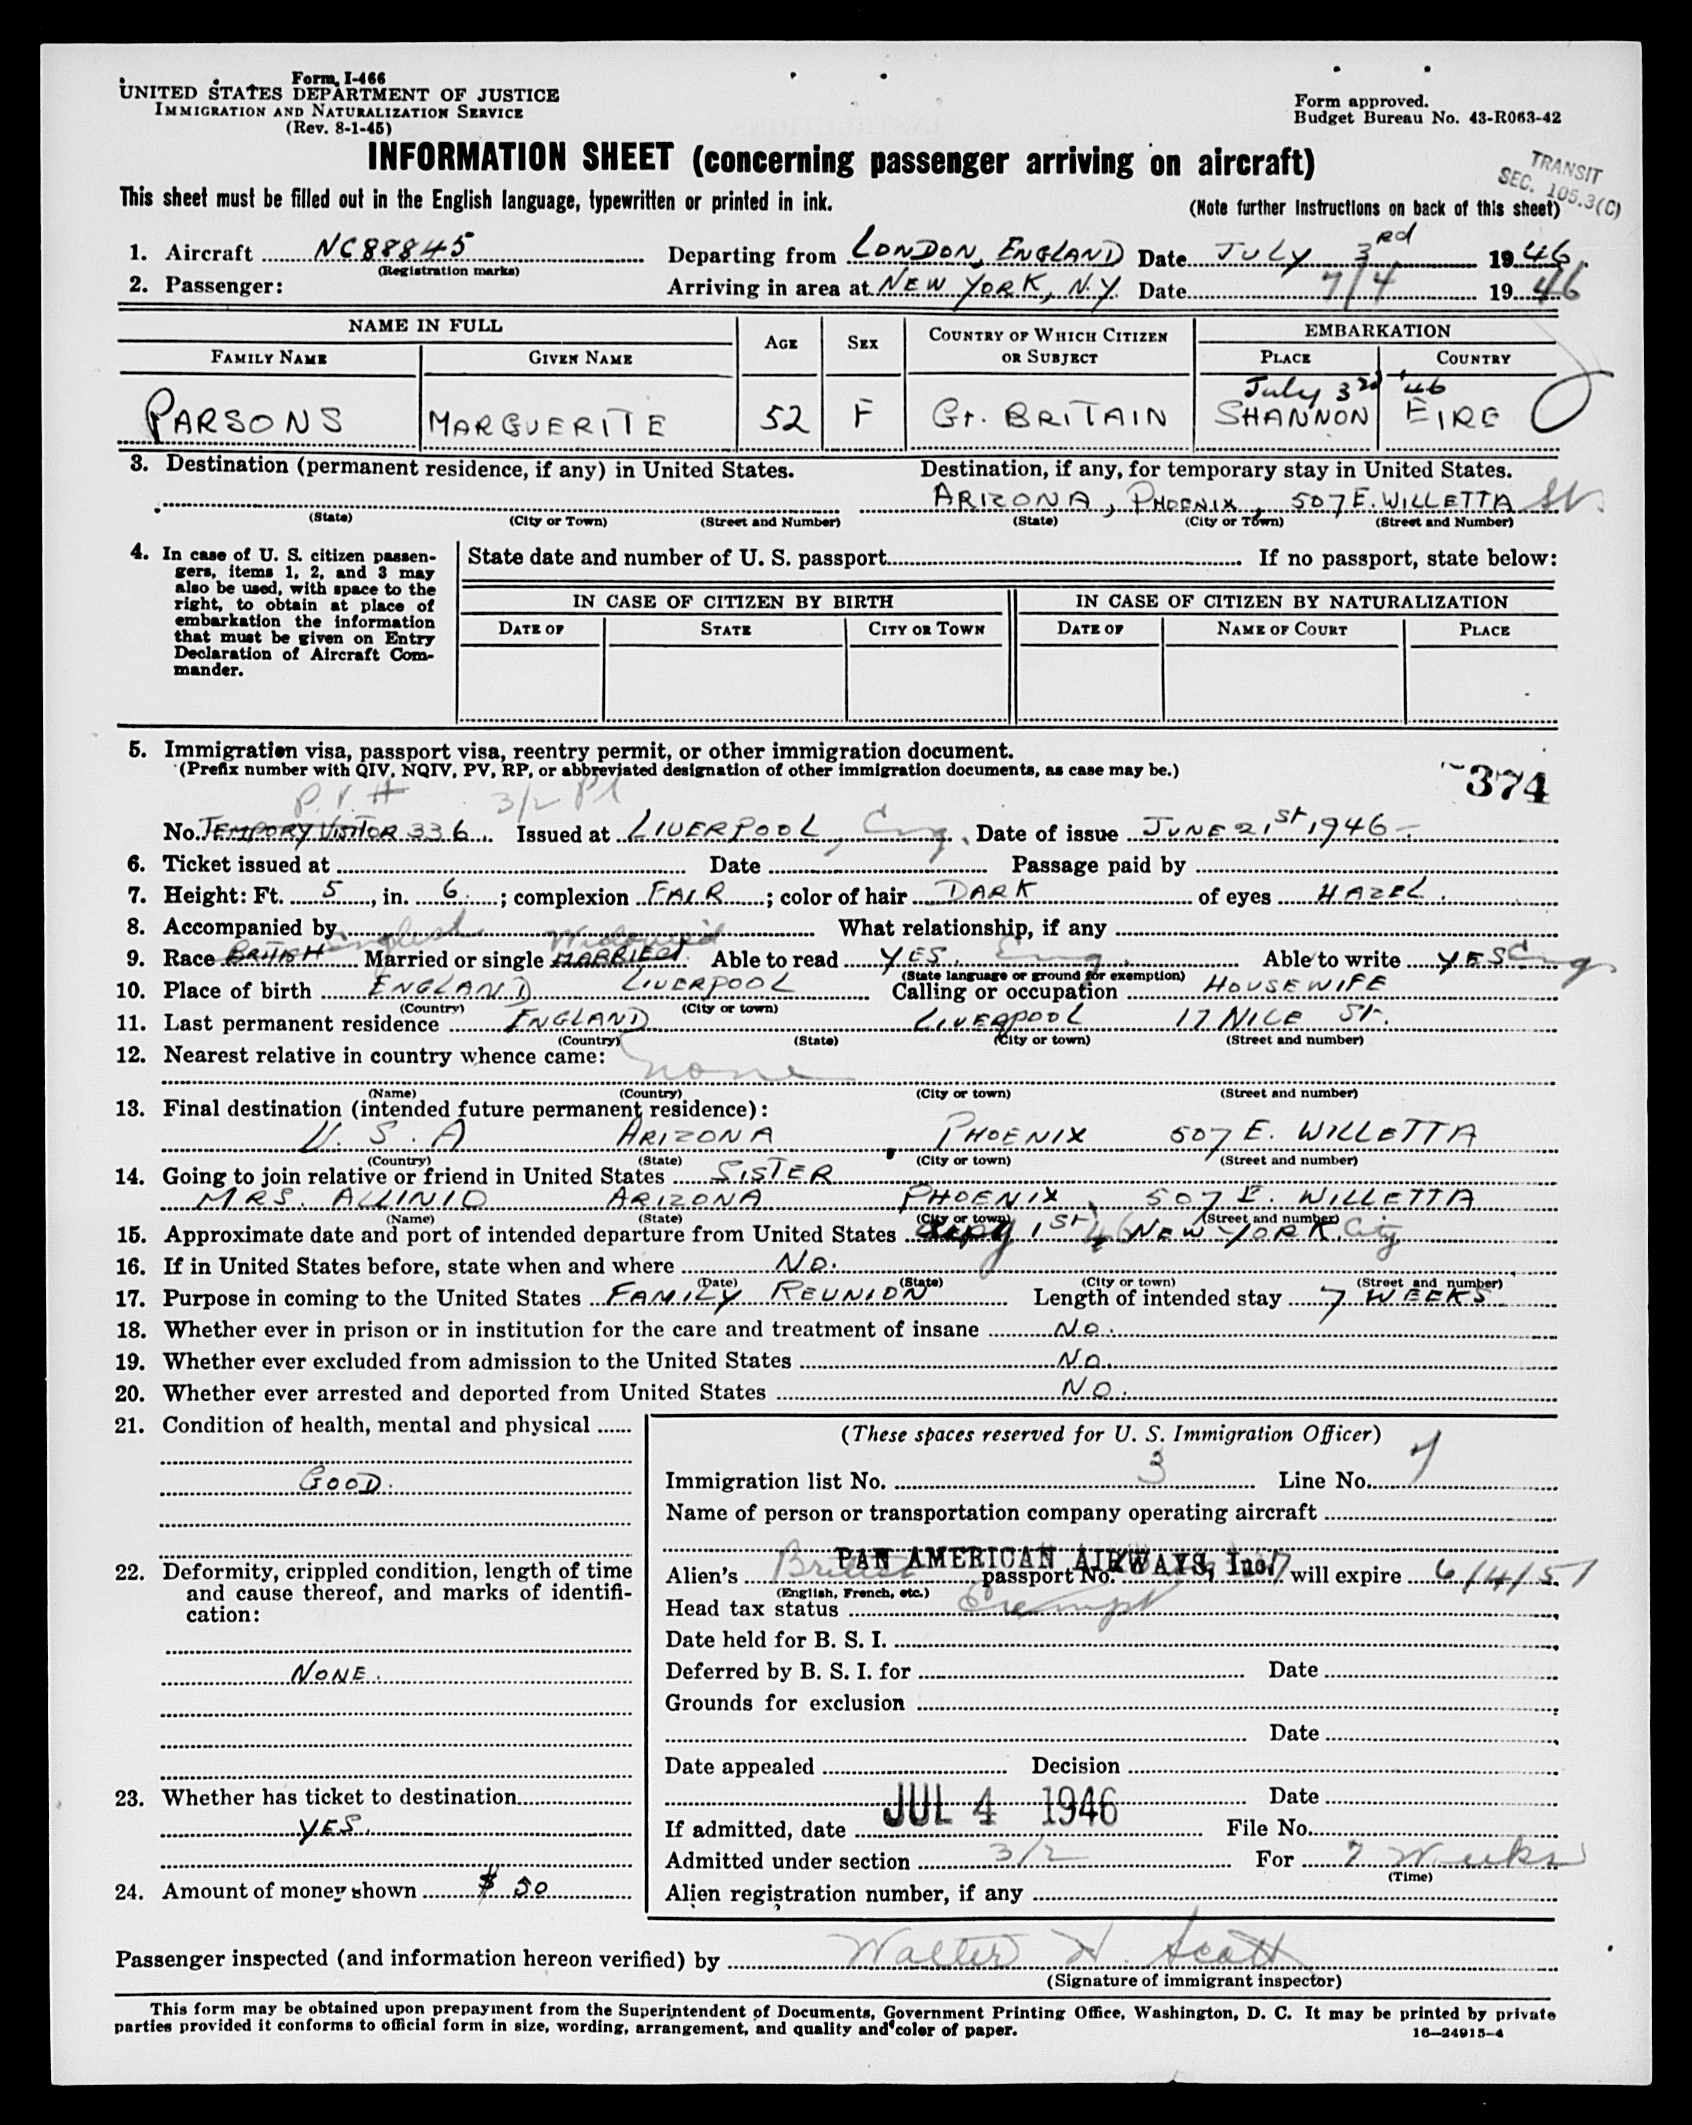 Form I-466
UNITED STATES DEPARTMENT OF JUSTICE
IMMIGRATION AND NATURALIZATION SERVICE
(Rev. 8-1-45)
Form approved.
Budget Bureau No. 43-R063-42
INFORMATION SHEET (concerning passenger arriving on aircraft)
TRANSIT
SEC. 105.3(C)
This sheet must be filled out in the English language, typewritten or printed in ink.
(Note further instructions on back of this sheet)
1. Aircraft NC88845 Departing from LONDON, ENGLAND Date JULY 3rd 1946.
(Registration marks)
2. Passenger: Arriving in area at NEW YORK, N.Y. Date 7/4 1946
NAME IN FULL AGE SEX COUNTRY OF WHICH CITIZEN OR SUBJECT EMBARKATION
FAMILY NAME GIVEN NAME PLACE COUNTRY
July 3rd '46
PARSONS MARGUERITE 52 F GT. BRITAIN SHANNON EIRE
3. Destination (permanent residence, if any) in United States. Destination, if any, for temporary stay in United States.
ARIZONA, PHOENIX, 507 E. WILLETTA St.
(State) (City or Town) (Street and Number) (State) (City or Town) (Street and Number)
4. In case of U. S. citizen passengers, items 1, 2, and 3 may also be used, with space to the right, to obtain at place of embarkation the information that must be given on Entry Declaration of Aircraft Commander.
State date and number of U. S. passport If no passport, state below:
IN CASE OF CITIZEN BY BIRTH IN CASE OF CITIZEN BY NATURALIZATION
DATE OF STATE CITY OR TOWN DATE OF NAME OF COURT PLACE
5. Immigration visa, passport visa, reentry permit, or other immigration document.
(Prefix number with QIV, NQIV, PV, RP, or abbreviated designation of other immigration documents, as case may be.)
374
P.V. # 3/2 Pl
No. TEMPORY VISITOR 336 Issued at LIVERPOOL, Eng. Date of issue JUNE 21st 1946
6. Ticket issued at Date Passage paid by
7. Height: Ft. 5, in. 6; complexion FAIR; color of hair DARK of eyes HAZEL.
8. Accompanied by What relationship, if any
English Widowed
9. Race BRITISH Married or single MARRIED Able to read YES. Eng. Able to write YES Eng
(State language or ground for exemption)
10. Place of birth ENGLAND LIVERPOOL Calling or occupation HOUSEWIFE
(Country) (City or town)
11. Last permanent residence ENGLAND LIVERPOOL 17 NILE ST.
(Country) (State) (City or town) (Street and number)
12. Nearest relative in country whence came:
none
(Name) (Country) (City or town) (Street and number)
13. Final destination (intended future permanent residence):
U. S. A ARIZONA PHOENIX 507 E. WILLETTA
(Country) (State) (City or town) (Street and number)
14. Going to join relative or friend in United States SISTER
MRS. ALLINIO ARIZONA PHOENIX, 507 E. WILLETTA
(Name) (State) (City or town) (Street and number)
15. Approximate date and port of intended departure from United States 1st 46 NEW YORK City
16. If in United States before, state when and where NO.
(Date) (State) (City or town) (Street and number)
17. Purpose in coming to the United States FAMILY REUNION Length of intended stay 7 WEEKS
18. Whether ever in prison or in institution for the care and treatment of insane NO.
19. Whether ever excluded from admission to the United States NO.
20. Whether ever arrested and deported from United States NO.
21. Condition of health, mental and physical
GOOD.
22. Deformity, crippled condition, length of time and cause thereof, and marks of identification:
NONE.
23. Whether has ticket to destination
YES.
24. Amount of money shown $ 50
(These spaces reserved for U. S. Immigration Officer)
Immigration list No. 3 Line No. 7
Name of person or transportation company operating aircraft
PAN AMERICAN AIRWAYS, Inc.
Alien's British passport No. will expire 6/4/51
(English, French, etc.)
Head tax status Exempt
Date held for B. S. I.
Deferred by B. S. I. for Date
Grounds for exclusion
Date
Date appealed Decision
Date
If admitted, date JUL 4 1946 File No.
Admitted under section 3/2 For 7 Weeks
(Time)
Alien registration number, if any
Passenger inspected (and information hereon verified) by Walter H. Scott
(Signature of immigrant inspector)
This form may be obtained upon prepayment from the Superintendent of Documents, Government Printing Office, Washington, D. C. It may be printed by private
parties provided it conforms to official form in size, wording, arrangement, and quality and color of paper.
16—24915-4